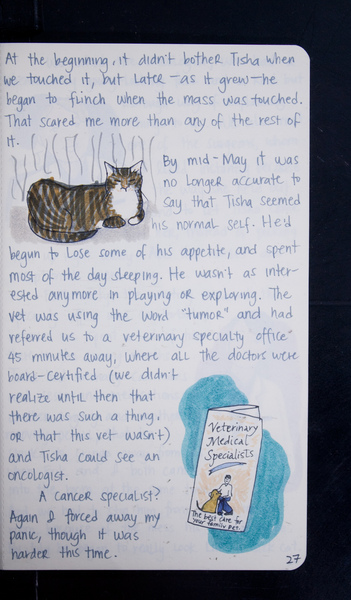 At the beginning, it didn't bother Tisha when
we touched it, but later—as it grew—he
began to flinch when the mass was touched.
That scared me more than any of the rest of
it.
By mid-May it was
no longer accurate to
say that Tisha seemed
his normal self. He'd
begun to lose some of his appetite, and spent
most of the day sleeping. He wasn't as inter-
ested anymore in playing or exploring. The
vet was using the word "tumor" and had
referred us to a "veterinary specialty office"
45 minutes away, where all the doctors were
board-certified (we didn't
realize until then that
there was such a thing.
or that this vet wasn't)
and Tisha could see an
oncologist.
A cancer specialist?
Again I forced away my
panic, though it was
harder this time.
Veterinary
Medical
Specialists
The best care for
your family pet.
27